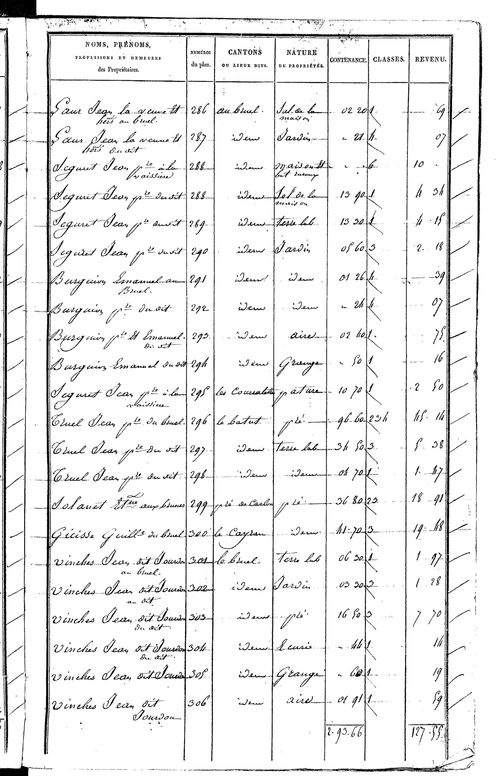 NOMS, PRÉNOMS, PROFESSIONS ET DEMEURES des Propriétaires. NUMÉROS du plan. CANTONS OU LIEUX DITS. NATURE DE PROPRIÉTÉS. CONTENANCE. CLASSES. REVENU.
Jean la veuve 286 au bruel Sol de la maison 02 20 1 69
Jean la veuve 287 idem Jardin 21 4 07
Seguret Jean pre à la 288 idem maison 6 10
Seguret Jean pre du dit 288 idem Sol de la maison 13 90 1 4 34
Seguret Jean pre du dit 289 idem terre lab 13 30 1 4 15
Seguret Jean pre du dit 290 idem Jardin 05 60 3 2 18
Burguion Emanuel au Bruel 291 idem idem 01 26 4 39
Burguion pre du dit 292 idem idem 24 4 07
Burguion pre Emanuel du dit 293 idem aire 02 40 1 75
Burguion Emanuel du dit 294 idem Grange 50 1 16
Seguret Jean pre à la 295 pature 10 70 1 2 50
Truel Jean pre du bruel 296 le batut pré 96 60 234 45 14
Truel Jean pre du dit 297 idem terre lab 34 50 3 5 38
Truel Jean pre du dit 298 idem idem 04 70 1 1 47
Solanet 299 pré de pré 36 80 23 18 91
du bruel 300 le Cayron idem 41 70 3 19 48
Vinches Jean dit Jourdon au bruel 301 le bruel terre lab 06 30 1 1 97
Vinches Jean dit Jourdon au dit 302 idem Jardin 03 30 3 1 28
Vinches Jean dit Jourdon du dit 303 idem pré 16 50 3 7 70
Vinches Jean dit Jourdon du dit 304 idem Ecurie 44 1 14
Vinches Jean dit Jourdon 305 idem Grange 60 1 19
Vinches Jean dit Jourdon 306 idem aire 01 91 1 59
2.93.66 127.55